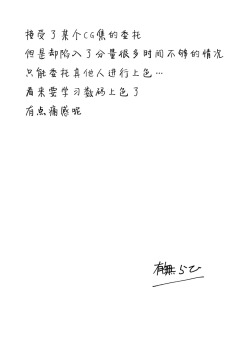 接受了某个CG集的委托
但是却陷入了分量很多时间不够的情况
只能委托其他人进行上色…
看来要学习数码上色了
有点痛感呢